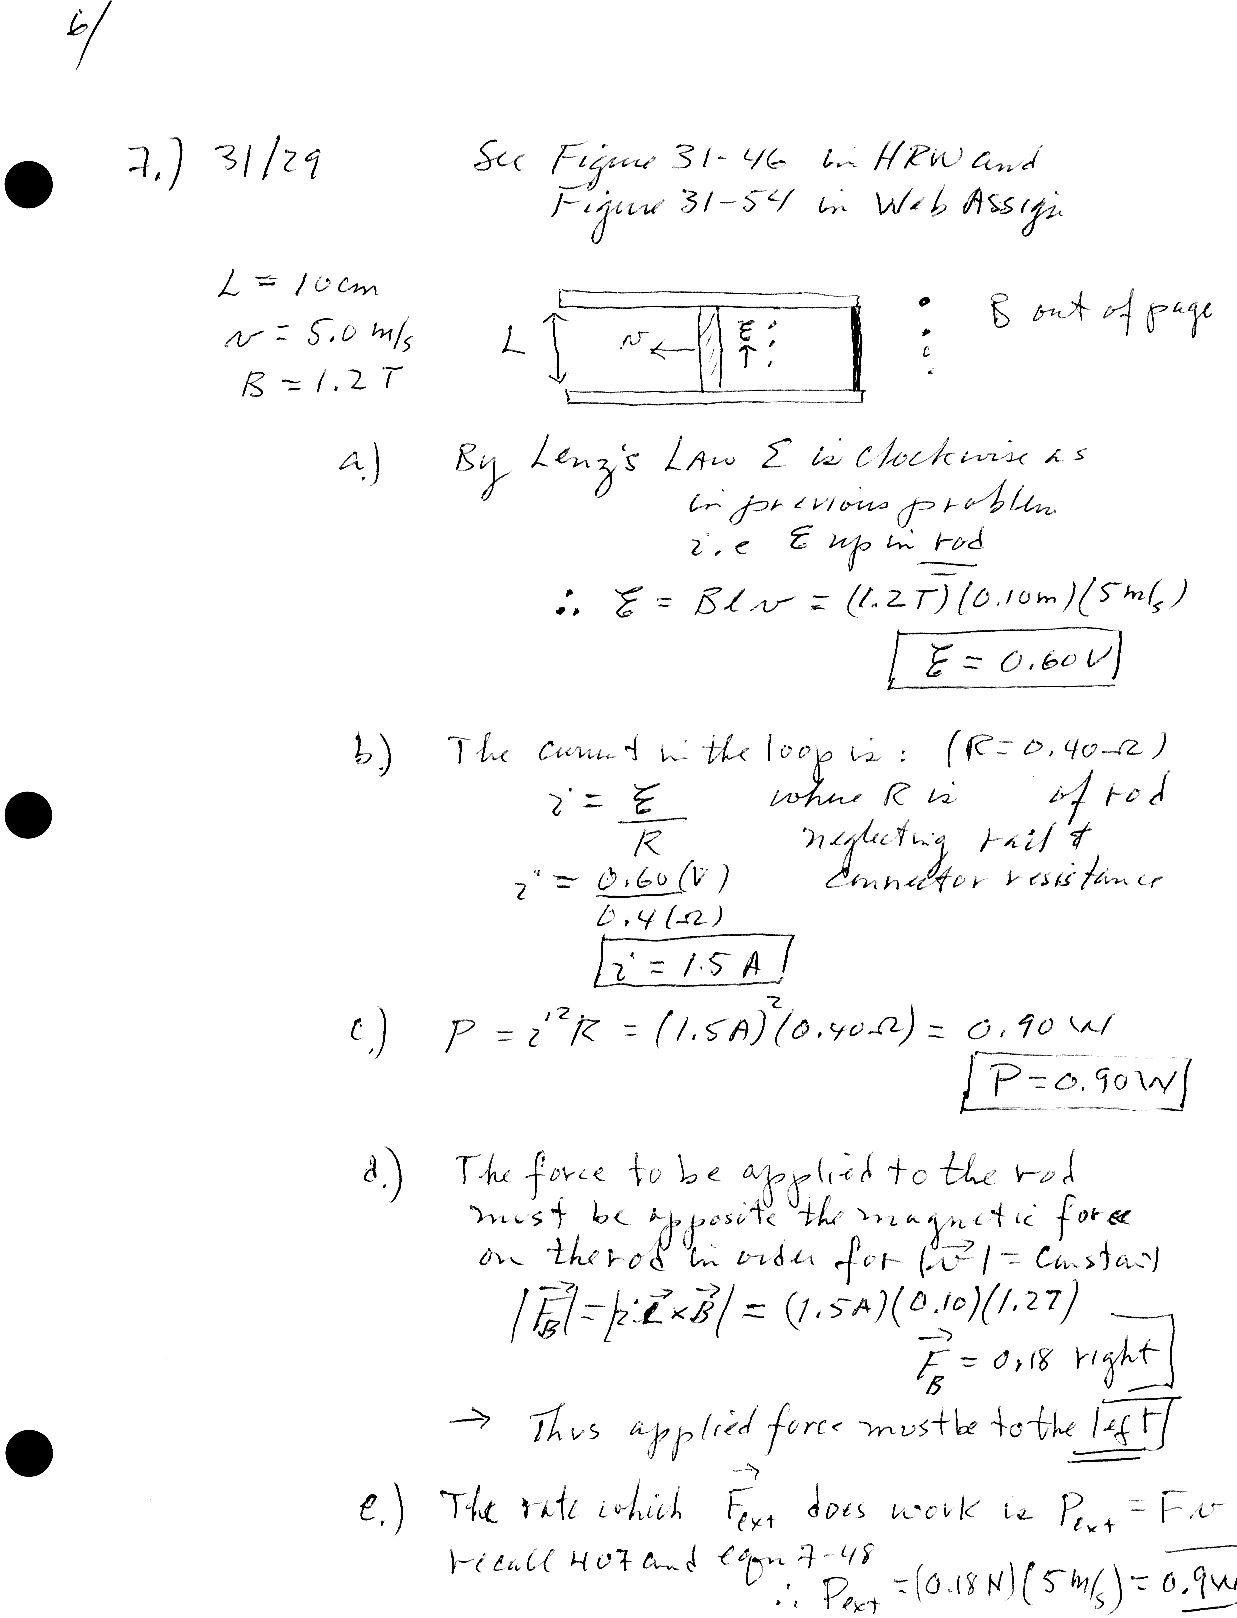 6/
7.) 31/29 See Figure 31-46 in HRW and
Figure 31-54 in Web Assign
L = 10cm
v = 5.0 m/s
B = 1.2 T
L v ℰ B out of page
a.) By Lenz's LAW ℰ is clockwise as
in previous problem
i.e ℰ up in rod
∴ ℰ = Blv = (1.2T)(0.10m)(5m/s)
ℰ = 0.60V
b.) The current in the loop is: (R=0.40Ω)
i = ℰ/R where R is of rod
neglecting rail &
i = 0.60(V)/0.4(Ω) connector resistance
i = 1.5 A
c.) P = i²R = (1.5A)²(0.40Ω) = 0.90 W
P=0.90W
d.) The force to be applied to the rod
must be opposite the magnetic force
on the rod in order for |v⃗| = constant
|F⃗_B| = |iL⃗×B⃗| = (1.5A)(0.10)(1.2T)
F⃗_B = 0.18 right
→ Thus applied force must be to the left
e.) The rate which F⃗_ext does work is P_ext = Fv
recall 407 and eqn 7-48
∴ P_ext = (0.18N)(5m/s) = 0.9W